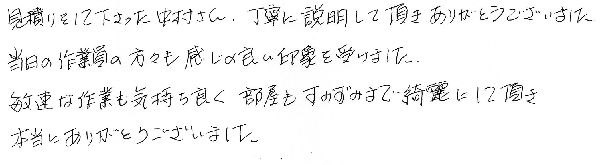 見積りをして下さった中村さん、丁寧に説明して頂きありがとうございました
当日の作業員の方々も感じの良い印象を受けました。
敏速な作業も気持ち良く 部屋もすみずみまで綺麗にして頂き
本当にありがとうございました。